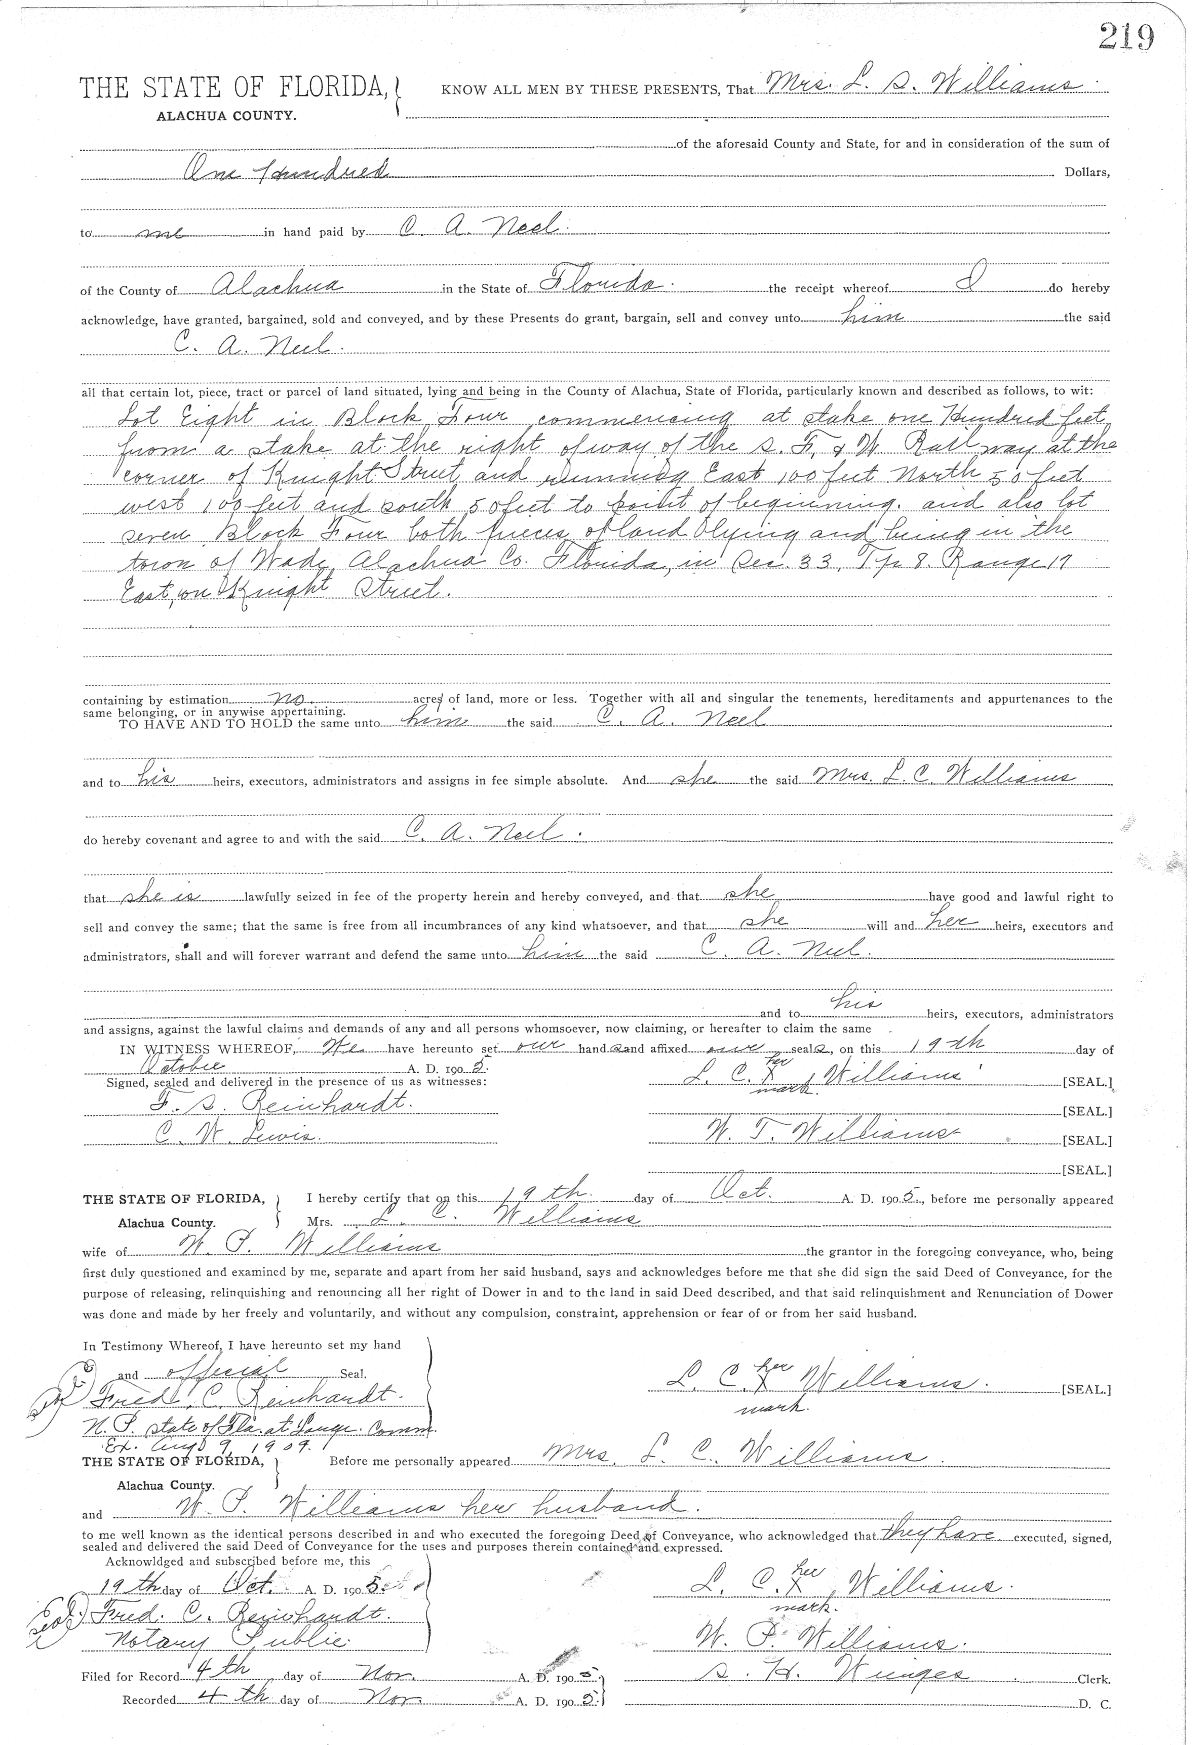 219
THE STATE OF FLORIDA, KNOW ALL MEN BY THESE PRESENTS, That Mrs. L. S. Williams
ALACHUA COUNTY.
of the aforesaid County and State, for and in consideration of the sum of
One Hundred Dollars,
to me in hand paid by C. A. Neel.
of the County of Alachua in the State of Florida. the receipt whereof I do hereby
acknowledge, have granted, bargained, sold and conveyed, and by these Presents do grant, bargain, sell and convey unto him the said
C. A. Neel.
all that certain lot, piece, tract or parcel of land situated, lying and being in the County of Alachua, State of Florida, particularly known and described as follows, to wit:
Lot Eight in Block Four commencing at stake one Hundred feet
from a stake at the right of way of the S. F. & W. Railway at the
corner of Knight Street and running East 100 feet North 50 feet
west 100 feet and south 50 feet to point of beginning. and also lot
seven Block Four both pieces of land lying and being in the
town of Wade, Alachua Co. Florida, in Sec. 33, Tp 8. Range 17
East, on Knight Street.
containing by estimation no. acres of land, more or less. Together with all and singular the tenements, hereditaments and appurtenances to the
same belonging, or in anywise appertaining.
TO HAVE AND TO HOLD the same unto him the said C. A. Neel
and to his heirs, executors, administrators and assigns in fee simple absolute. And she the said Mrs. L. C. Williams
do hereby covenant and agree to and with the said C. A. Neel.
that she is lawfully seized in fee of the property herein and hereby conveyed, and that she have good and lawful right to
sell and convey the same; that the same is free from all incumbrances of any kind whatsoever, and that she will and her heirs, executors and
administrators, shall and will forever warrant and defend the same unto him the said C. A. Neel.
and to his heirs, executors, administrators
and assigns, against the lawful claims and demands of any and all persons whomsoever, now claiming, or hereafter to claim the same
IN WITNESS WHEREOF, We have hereunto set our hands and affixed our seals, on this 19th day of
October A. D. 1905. L. C. her X mark. Williams [SEAL.]
Signed, sealed and delivered in the presence of us as witnesses:
F. S. Reinhardt. [SEAL.]
C. W. Lewis. W. T. Williams [SEAL.]
[SEAL.]
THE STATE OF FLORIDA, I hereby certify that on this 19th. day of Oct. A. D. 1905., before me personally appeared
Alachua County. Mrs. L. C. Williams
wife of W. P. Williams the grantor in the foregoing conveyance, who, being
first duly questioned and examined by me, separate and apart from her said husband, says and acknowledges before me that she did sign the said Deed of Conveyance, for the
purpose of releasing, relinquishing and renouncing all her right of Dower in and to the land in said Deed described, and that said relinquishment and Renunciation of Dower
was done and made by her freely and voluntarily, and without any compulsion, constraint, apprehension or fear of or from her said husband.
In Testimony Whereof, I have hereunto set my hand
and official Seal. L. C. her X mark. Williams. [SEAL.]
Fred. C. Reinhardt.
N. P. State of Fla. at Large. Comm.
Ex. Aug 9, 1909.
THE STATE OF FLORIDA, Before me personally appeared Mrs. L. C. Williams.
Alachua County.
and W. P. Williams her husband.
to me well known as the identical persons described in and who executed the foregoing Deed of Conveyance, who acknowledged that they have executed, signed,
sealed and delivered the said Deed of Conveyance for the uses and purposes therein contained and expressed.
Acknowldged and subscribed before me, this
19th day of Oct. A. D. 1905. L. C. her X mark. Williams.
Seal. Fred. C. Reinhardt.
Notary Public. W. P. Williams.
Filed for Record 4th day of Nov. A. D. 1905 S. H. Wienges Clerk.
Recorded 4th day of Nov. A. D. 1905 D. C.